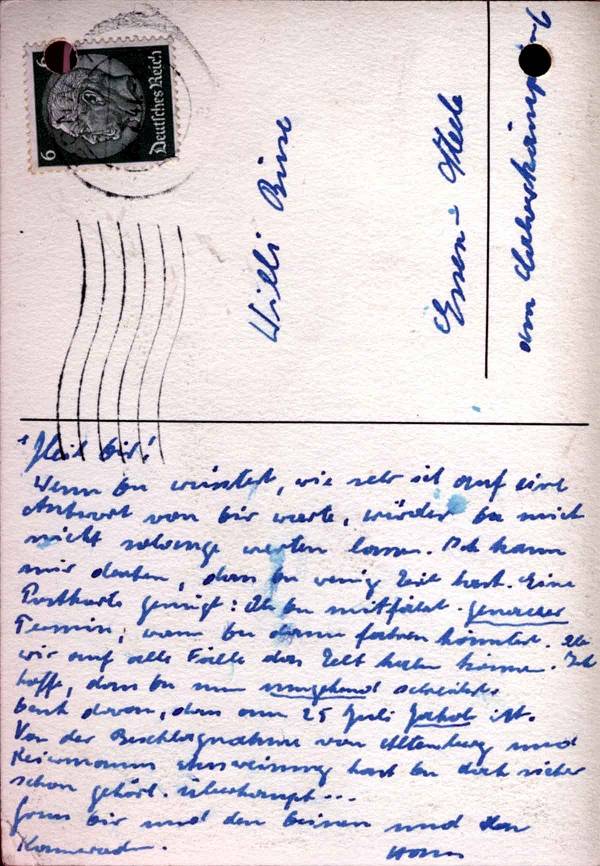 6
6
Deutsches Reich
Willi
Essen-Steele
am
Heil Dir!
Wenn Du wüsstest, wie sehr ich auf eine
Antwort von Dir warte, würdest Du mich
nicht solange warten lassen. Ich kann
mir denken, dass Du wenig Zeit hast. Eine
Postkarte genügt: Ob Du mitfährst. genauer
Termin, wann Du dann fahren könntest. Ob
wir auf alle Fälle das Zelt haben können. Ich
hoffe, dass Du nun umgehend schreibst.
Denk daran, dass am 25 Juli ist.
Von der Beschlagnahme von Altenberg und
Ausweisung hast Du doch sicher
schon gehört. Überhaupt...
Gruss Dir und den Deinen und den
Kameraden.